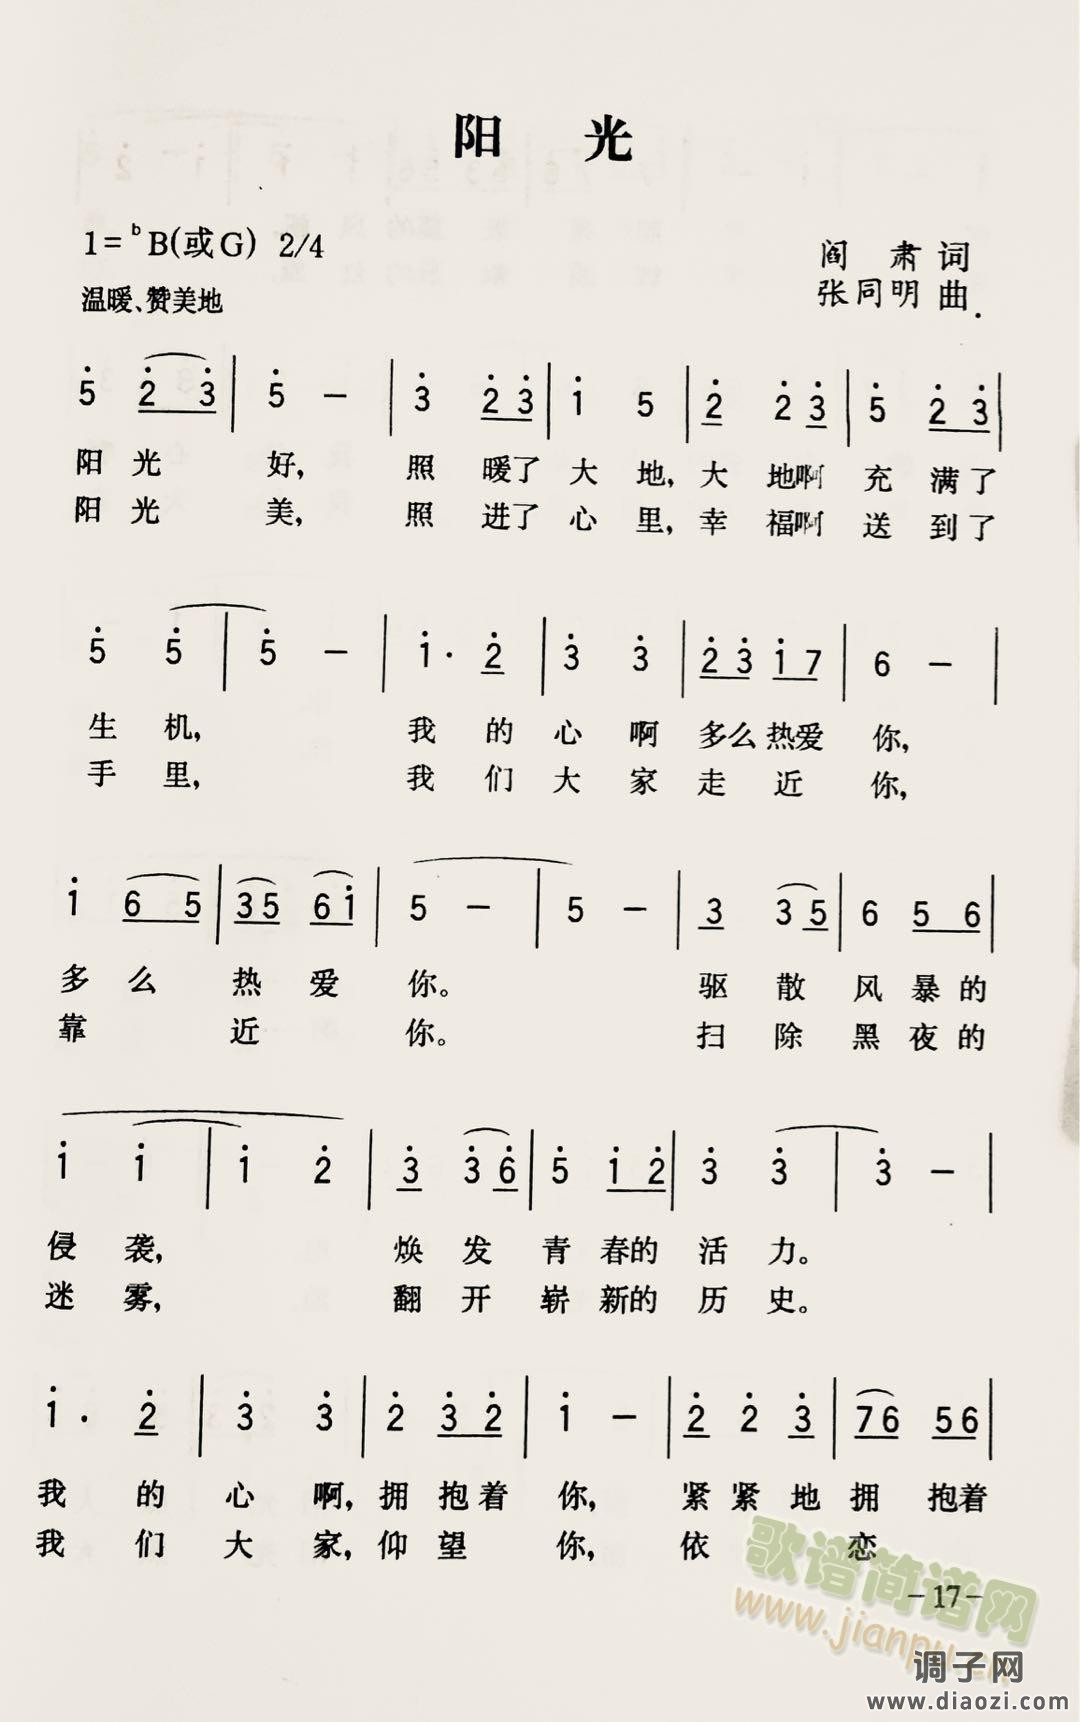 阳 光
1=ᵇB(或G) 2/4
阎 肃 词
温暖、赞美地
张同明 曲
5 2 3 | 5 — | 3 2 3 | 1 5 | 2 2 3 | 5 2 3 |
阳 光 好, 照 暖了 大 地, 大 地啊 充 满了
阳 光 美, 照 进了 心 里, 幸 福啊 送 到了
5 5 | 5 — | 1· 2 | 3 3 | 2 3 1 7 | 6 — |
生 机, 我 的 心 啊 多么 热爱 你,
手 里, 我 们 大 家 走 近 你,
1 6 5 | 3 5 6 1 | 5 — | 5 — | 3 3 5 | 6 5 6 |
多 么 热 爱 你。 驱 散 风 暴的
靠 近 你。 扫 除 黑 夜的
1 1 | 1 2 | 3 3 6 | 5 1 2 | 3 3 | 3 — |
侵 袭, 焕 发 青 春的 活 力。
迷 雾, 翻 开 崭 新的 历 史。
1· 2 | 3 3 | 2 3 2 | 1 — | 2 2 3 | 7 6 5 6 |
我 的 心 啊, 拥 抱着 你, 紧 紧 地 拥 抱着
我 们 大 家, 仰 望 你, 依 恋
歌谱简谱网
—17—
www.jianpu.cn
调子网
www.diaozi.com